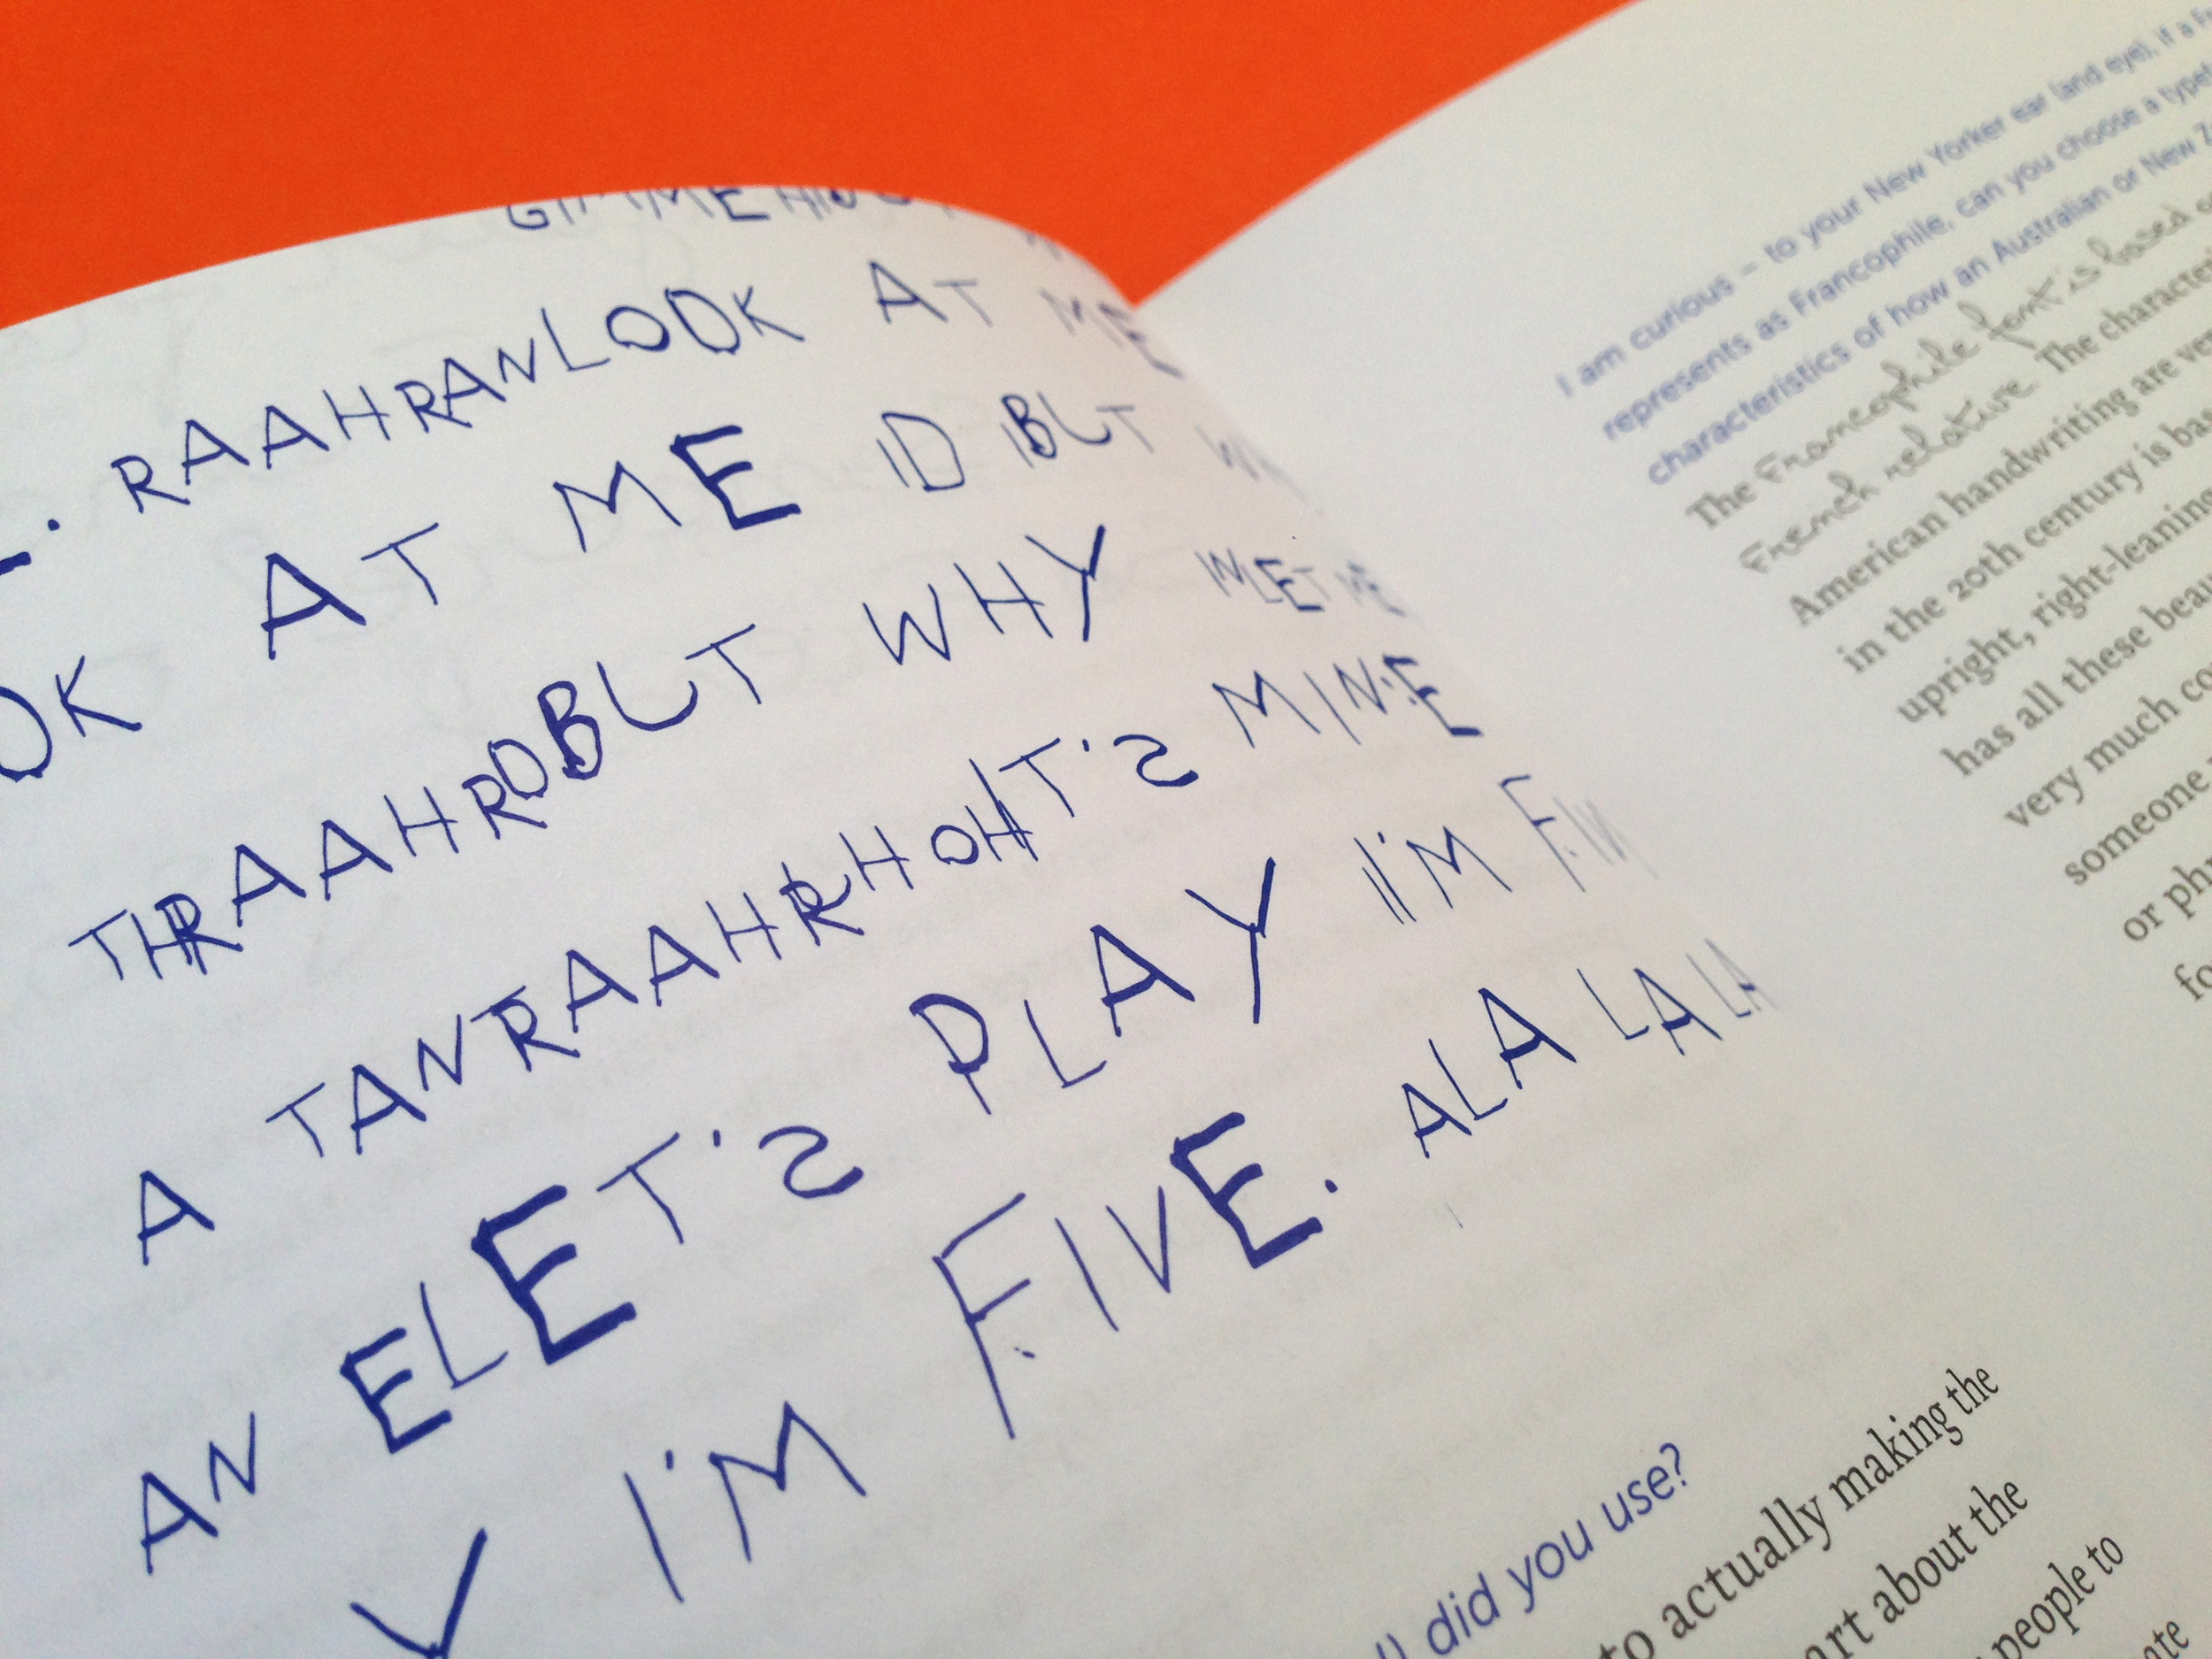 GIMME
. RAAHRANLOOK AT ME
OK AT ME ID BUT
THRAAHRDBUT WHY INLET ME
A TANTRAAHRHOHT'S MINE
AN ELET'S PLAY I'M
I'M FIVE. ALA LA LA
I am curious – to your New Yorker ear (and eye), if a
represents as Francophile, can you choose a
characteristics of how an Australian or New
The Francophile font is based
French relative. The
American handwriting are
in the 20th century is
upright, right-leaning
has all these
very much
someone
or
did you use?
to actually making the
about the
people to